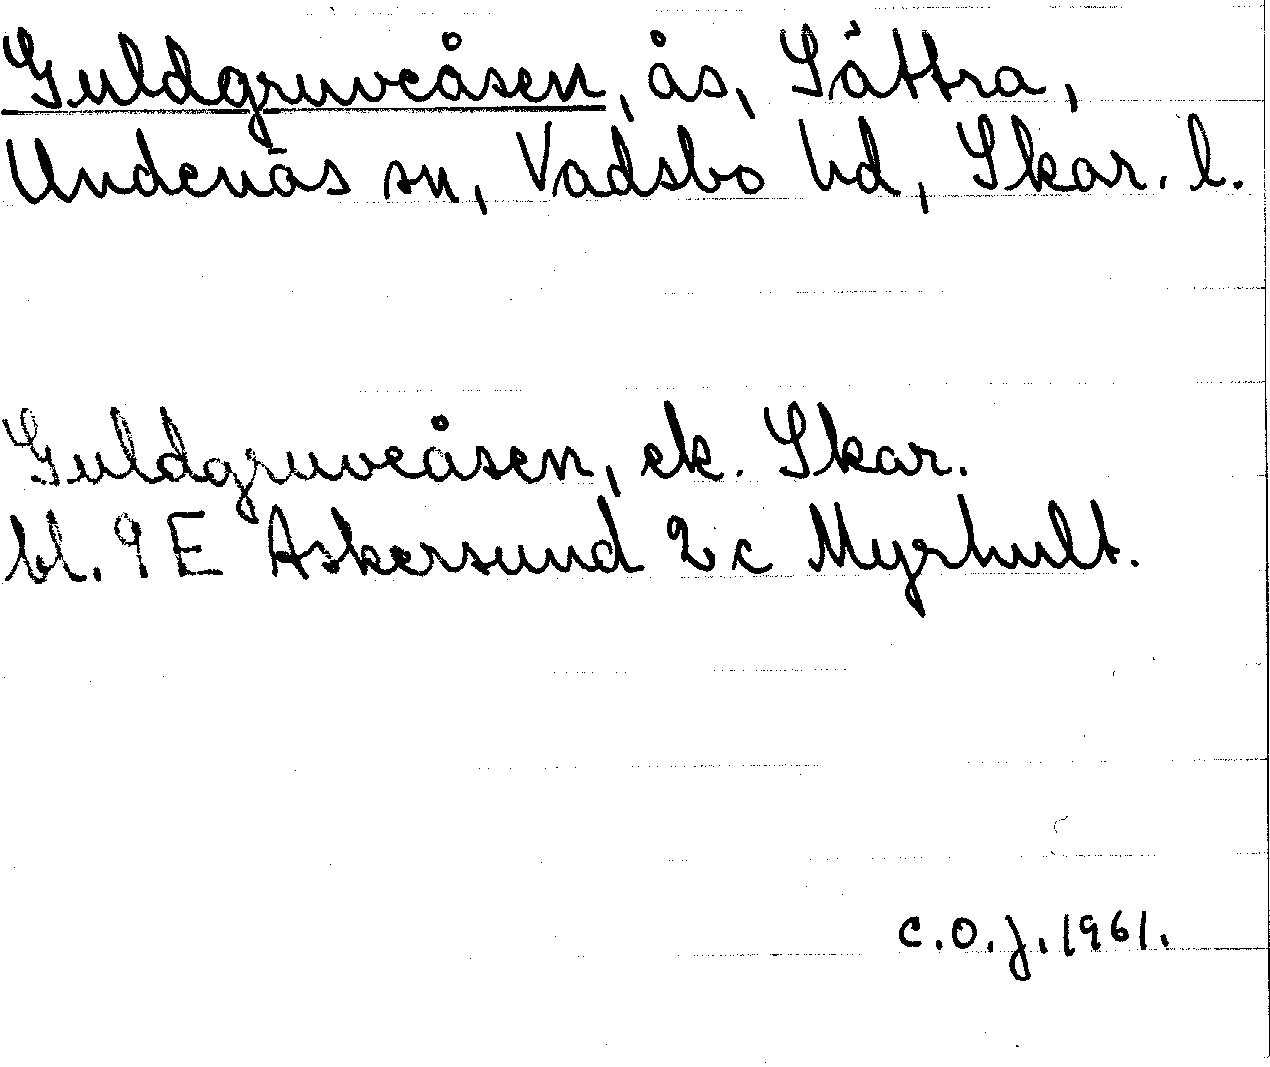 Guldgruveåsen, ås, Sättra,
Undenäs sn, Vadsbo hd, Skar. l.
Guldgruveåsen, ek. Skar.
bl. 9 E Askersund 2 c Myrhult.
C.O.J. 1961.